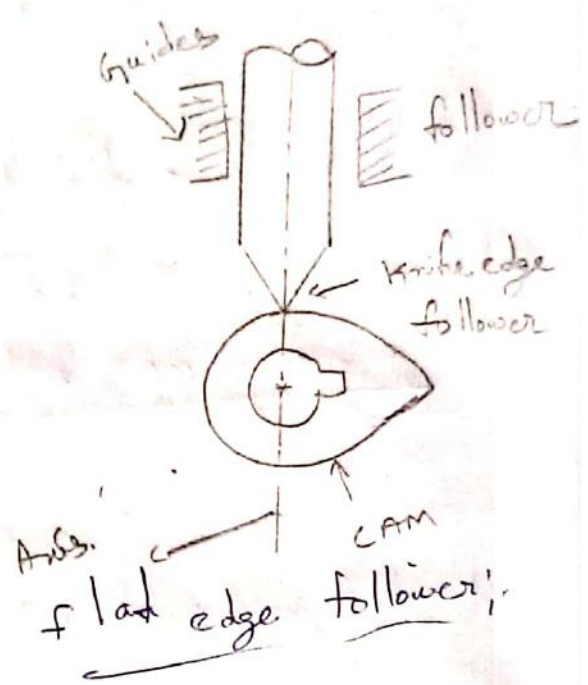 Guides
follower
Knife edge
follower
CAM
Axis.
flat edge follower;